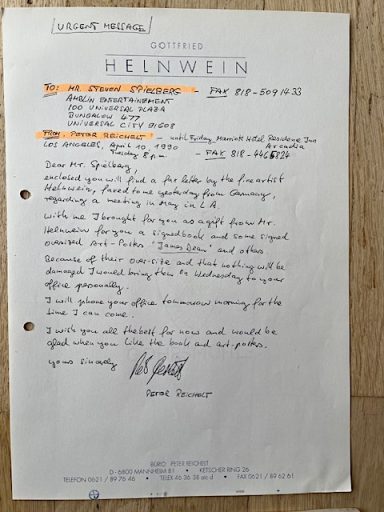 URGENT MESSAGE
GOTTFRIED
HELNWEIN
TO: MR. STEVEN SPIELBERG - FAX 818-509 1433
AMBLIN ENTERTAINEMENT
100 UNIVERSAL PLAZA
BUNGALOW 477
UNIVERSAL CITY 91608
FROM: PETER REICHELT - until Friday, Marriott Hotel Residence Inn
Arcadia
LOS ANGELES, April 10, 1990 - FAX 818-4465824
Tuesday 8 pm
Dear Mr. Spielberg,
enclosed you will find a fax letter by the fine artist
Helnwein, faxed to me yesterday from Germany,
regarding a meeting in May in L.A.
With me I brought for you as a gift from Mr.
Helnwein for you a signed book and some signed
oversized Art-Posters "James Dean" and others
Because of their over-size and that nothing will be
damaged I would bring them on Wednesday to your
office personally.
I will phone your office tomorrow morning for the
time I can come.
I wish you all the best for now and would be
glad when you like the book and art-posters.
yours sincerly
PETER REICHELT
BÜRO PETER REICHELT
D-6800 MANNHEIM 81 • KETSCHER RING 26
TELEFON 0621 / 89 76 46 • TELEX 46 36 38 arc d • FAX 0621 / 89 62 61